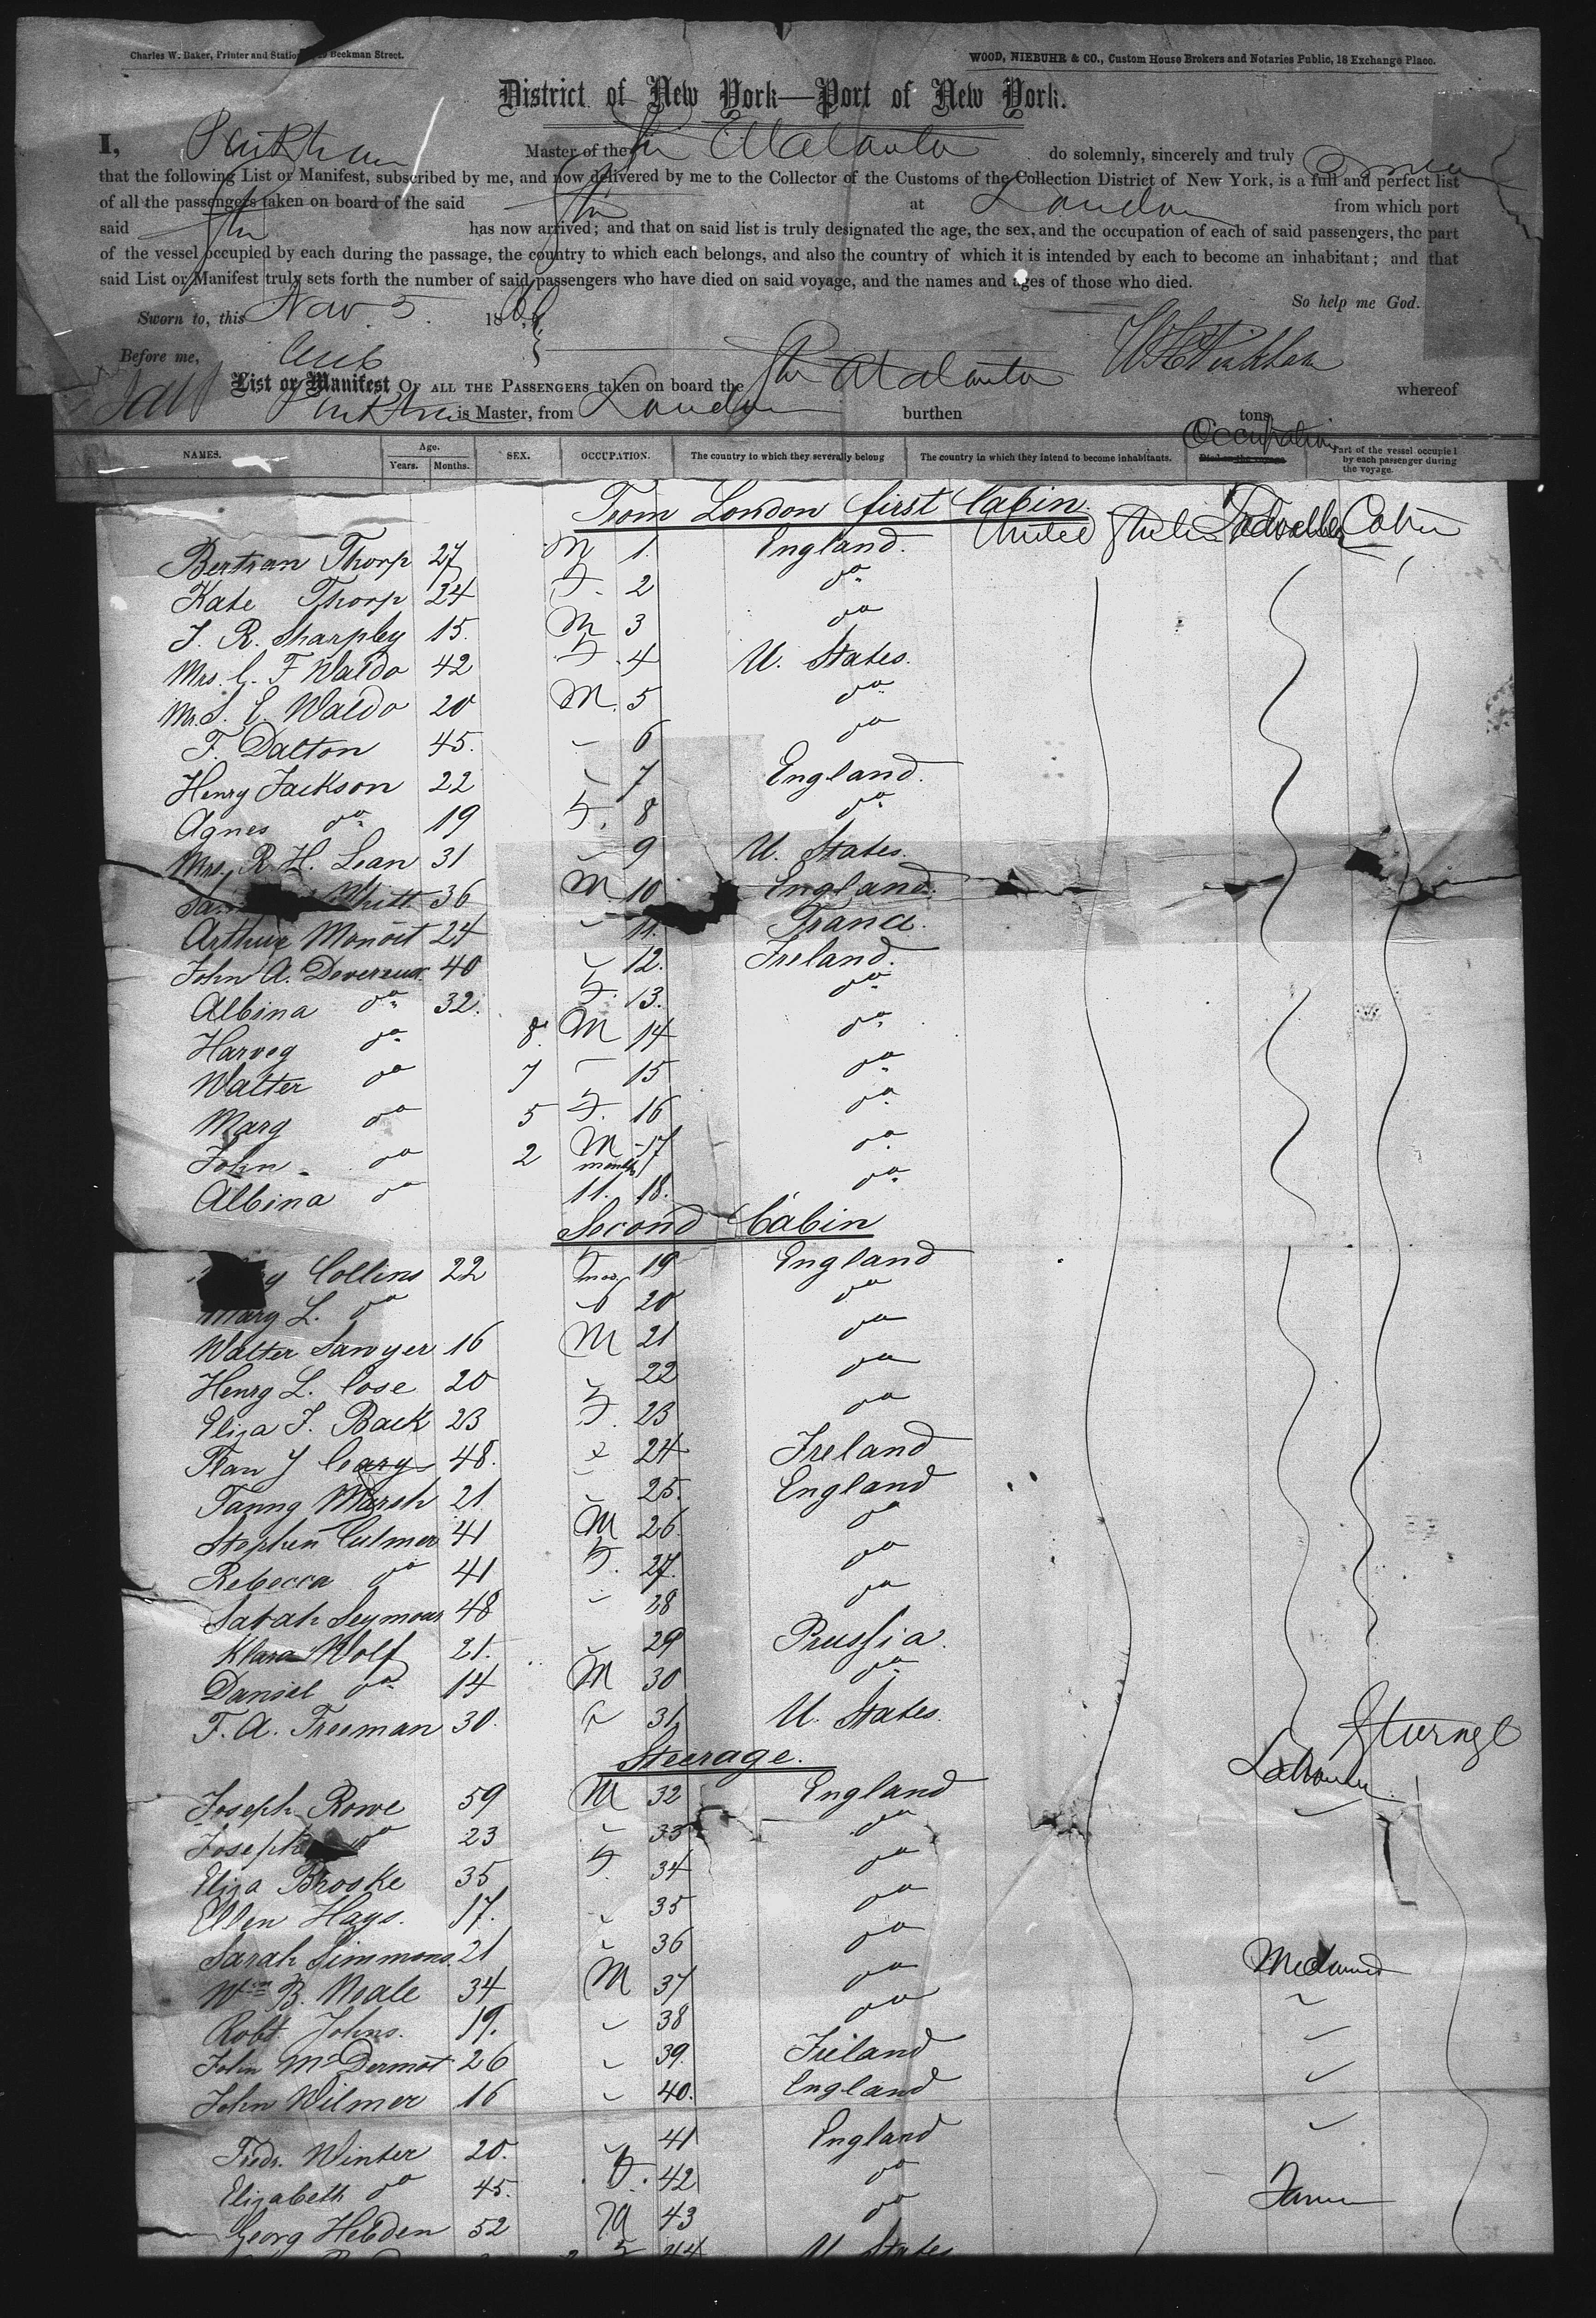 Charles W. Baker, Printer and Beekman Street.
WOOD, NIEBUHR & CO., Custom House Brokers and Notaries Public, 18 Exchange Place.
District of New York—Port of New York.
I, Pinkham Master of the Str Atalanta do solemnly, sincerely and truly
that the following List or Manifest, subscribed by me, and now delivered by me to the Collector of the Customs of the Collection District of New York, is a full and perfect list
of all the passengers taken on board of the said Str at London from which port
said Str has now arrived; and that on said list is truly designated the age, the sex, and the occupation of each of said passengers, the part
of the vessel occupied by each during the passage, the country to which each belongs, and also the country of which it is intended by each to become an inhabitant; and that
said List or Manifest truly sets forth the number of said passengers who have died on said voyage, and the names and ages of those who died.
So help me God.
Sworn to, this Nov 5 186
Before me,
List or Manifest OF ALL THE PASSENGERS taken on board the Str Atalanta whereof
Pinkham is Master, from London burthen tons
NAMES. Age. Years. Months. SEX. OCCUPATION. The country to which they severally belong The country in which they intend to become inhabitants. Occupation Died on the voyage Part of the vessel occupied by each passenger during the voyage.
From London first Cabin.
Bertran Thorp 27 M 1. England. United States Cabin
Kate Thorp 24 F. 2 do
J. R. Sharpley 15. M 3 do
Mrs. C. F Waldo 42 F. 4 U. States.
Mr. S. E. Waldo 20 M. 5 do
F. Dalton 45. 6 do
Henry Jackson 22 7 England.
Agnes do 19 F. 8 do
Mrs. R. H. Lean 31 9 U. States.
36 M. 10 England.
Arthur Monoit 24 11. France.
John A. Devereux 40 12. Ireland.
Albina do 32. F. 13. do
Harvey do 8 M 14 do
Walter do 7 15 do
Mary do 5 F. 16 do
John do 2 M 17 do
Albina do months 11. 18. do
Second Cabin
Collins 22 F 19 England
Mary L. do mos. 6 20 do
Walter Sawyer 16 M 21 do
Henry L. Cose 20 22 do
Eliza J. Back 23 F. 23 do
48. 24 Ireland
Fanny Marsh 21 25. England
Stephen Culmer 41 M 26. do
Rebecca do 41 F. 27. do
Sarah Seymour 48 28 do
Klara Wolf 21. 29 Prussia.
Daniel do 14 M 30 do
F. A. Freeman 30. 31 U. States.
Steerage.
Steerage
Joseph Rowe 59 M 32 England Labourer
Joseph do 23 33 do
Eliza Brooke 35 F. 34 do
Ellen Hays. 17. 35 do
Sarah Simmons. 21 36 do
Wm B. Neale 34 M 37 do
Robt Johns. 19. 38 do
John McDermot 26 39. Ireland
John Wilmer 16 40. England
Fredr. Winter 20. 41 England
Elizabeth do 45. F. 42 do
Georg Hebden 52 M 43 do
44 U States